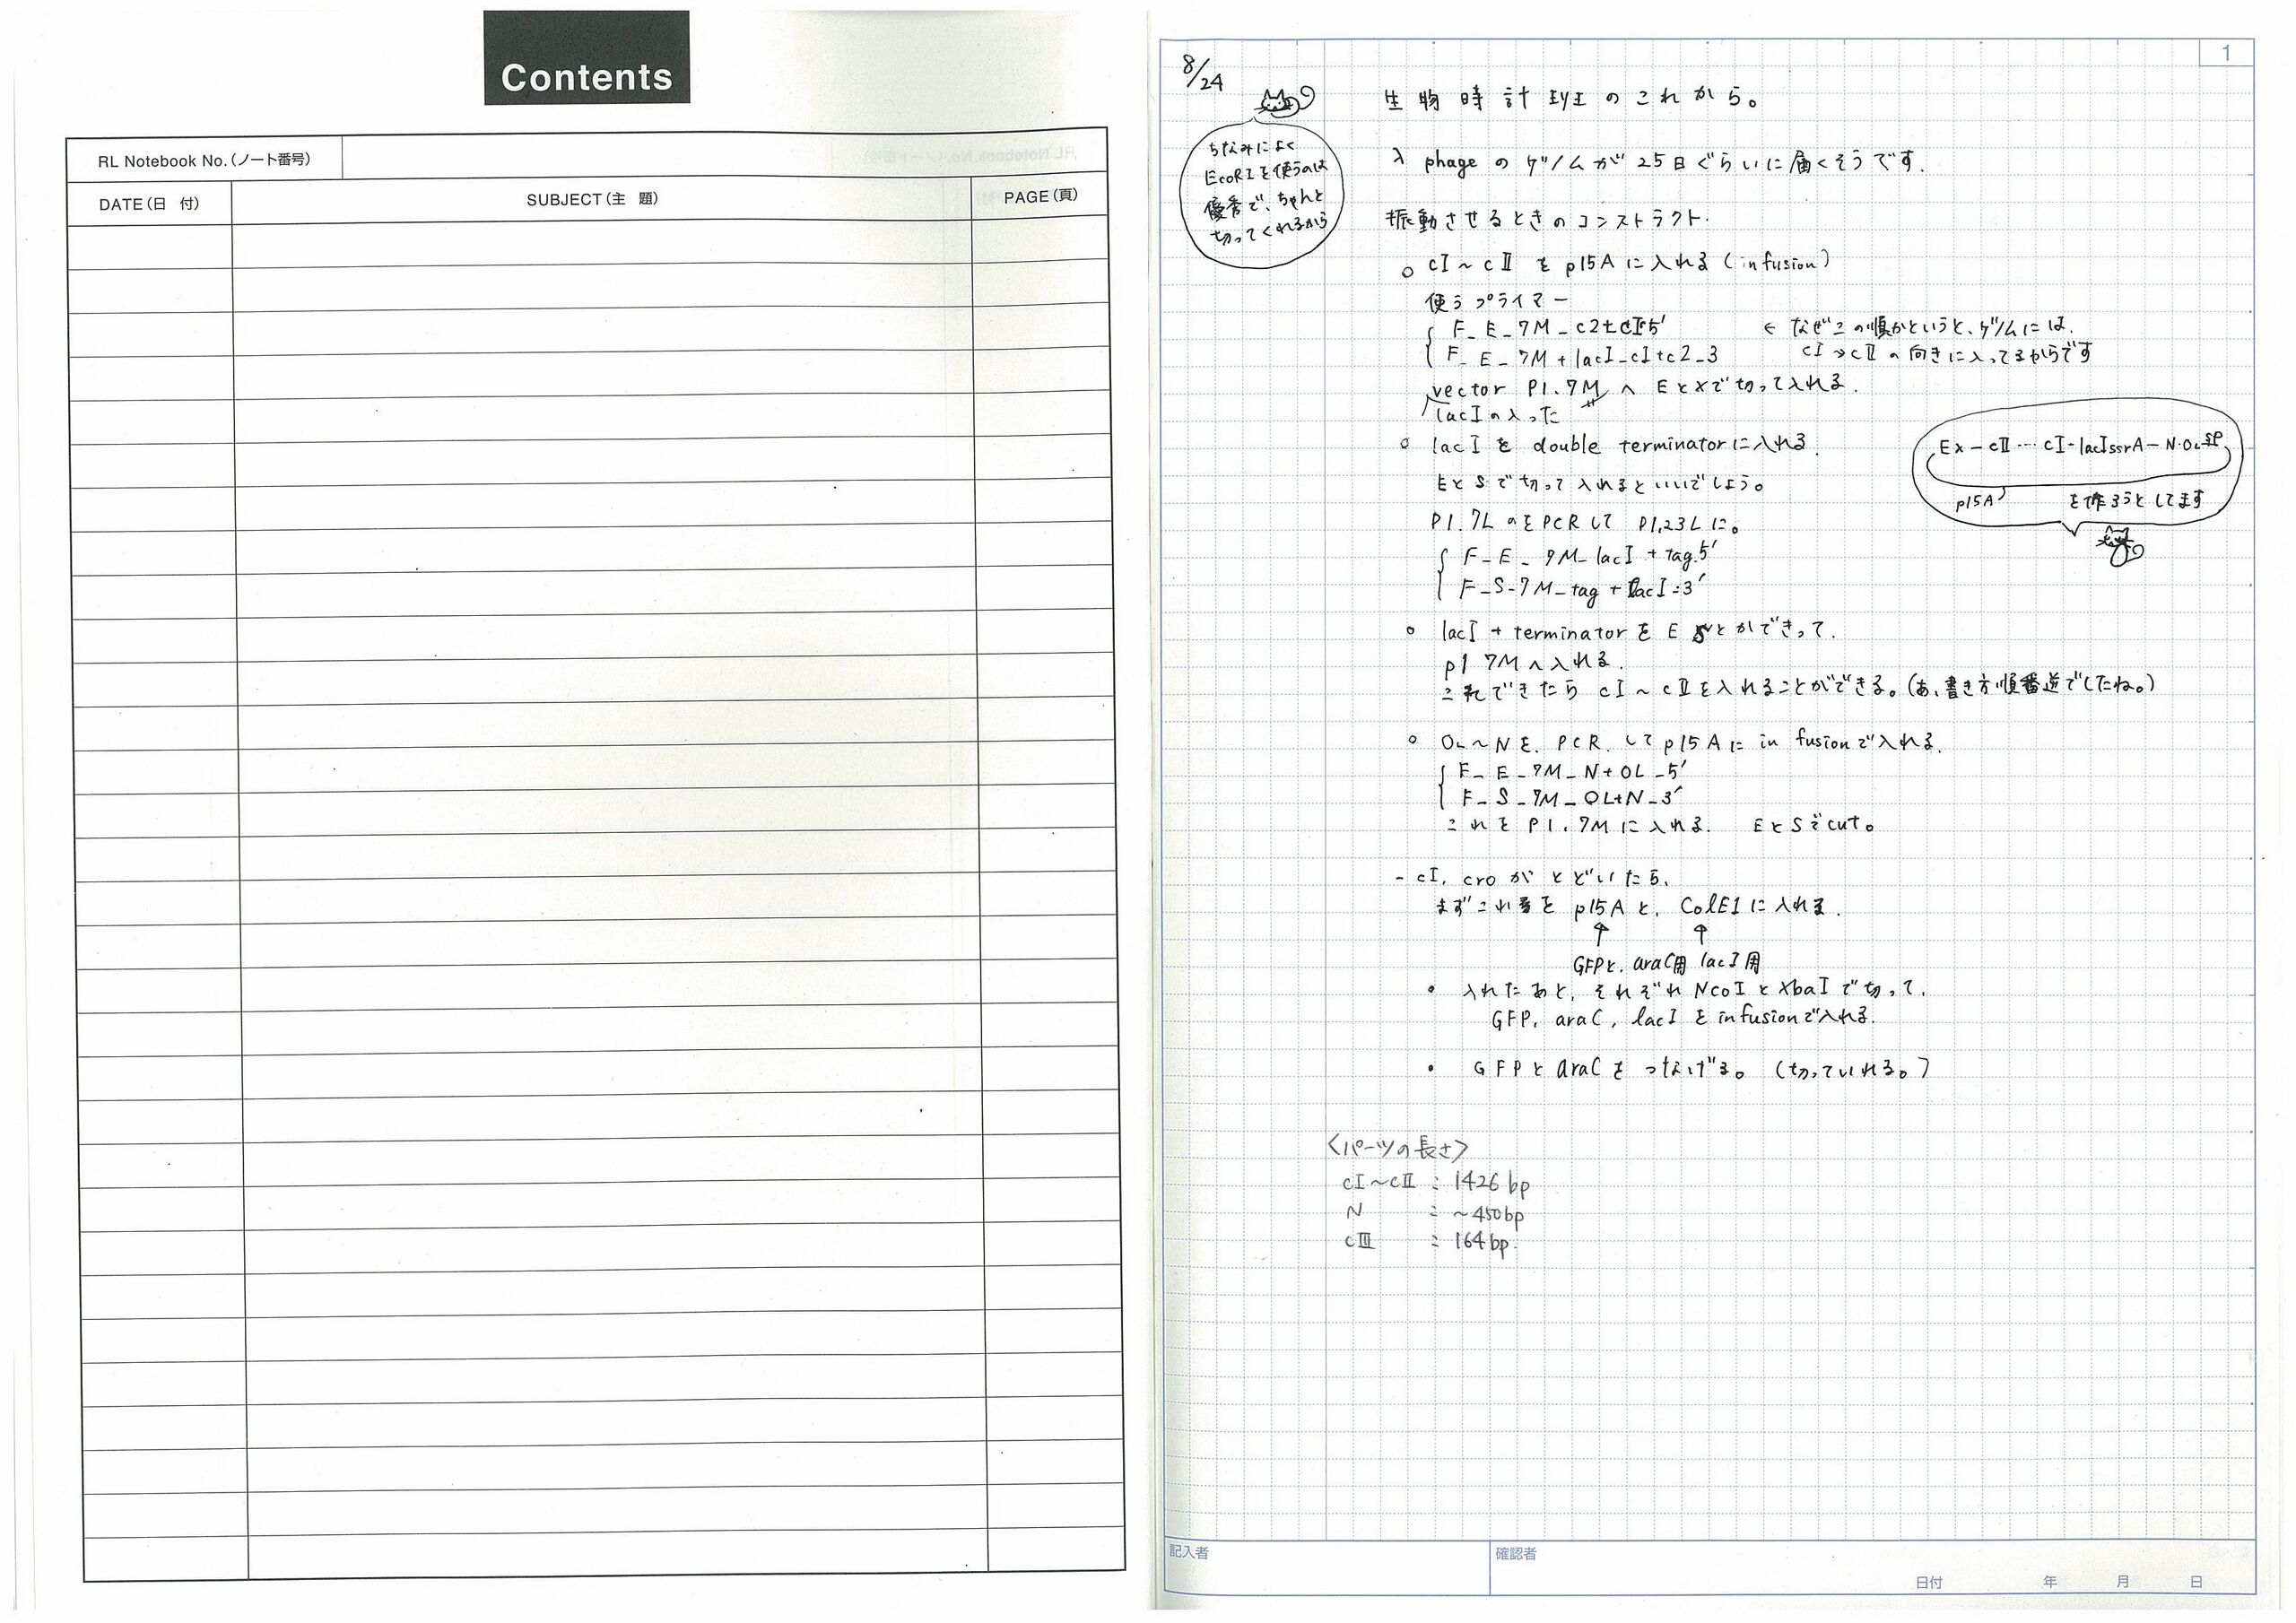 Contents
RL Notebook No.(ノート番号)
DATE(日 付)
SUBJECT(主 題)
PAGE(頁)
1
8/24
ちなみによく
EcoRIを使うのは
優秀で、ちゃんと
切ってくれるから
生物時計班のこれから。
λ phageのゲノムが25日ぐらいに届くそうです.
振動させるときのコンストラクト.
○ cI~cⅡ を p15Aに入れる (infusion)
使うプライマー
F_E_7M_c2+cI-5'
F_E_7M+lacI_cI+c2_3
← なぜこの順かというと、ゲノムには、
cI→cⅡの向きに入ってるからです
vector P1.7M へ EとXで切って入れる.
lacIの入った
○ lacI を double terminatorに入れる.
EとSで切って入れるといいでしょう。
P1.7LのをPCRして P1.23Lに。
F_E_7M_lacI+tag-5'
F_S_7M_tag+lacI-3'
Ex-cⅡ…cI-lacIssrA-N-OL SP
p15A
を作ろうとしてます
○ lacI + terminatorを E Sとかできって.
p1 7Mへ入れる.
これできたら cI~cⅡを入れることができる。(あ、書き方順番逆でしたね。)
○ OL~Nを. PCR. して p15Aに in fusionで入れる.
F_E_7M_N+OL_5'
F_S_7M_OL+N_3'
これを P1.7Mに入れる. EとSでcut。
- cI, croが とどいたら、
まずこれらを p15Aと, ColE1に入れる.
↑ ↑
GFPと, araC用 lacI用
・ 入れたあと, それぞれ NcoIとXbaIで切って,
GFP, araC, lacI を infusionで入れる.
・ GFPとaraCを つなげる。 (切っていれる。)
〈パーツの長さ〉
cI~cⅡ : 1426bp
N : ~450bp
cⅢ : 164bp.
記入者
確認者
日付 年 月 日